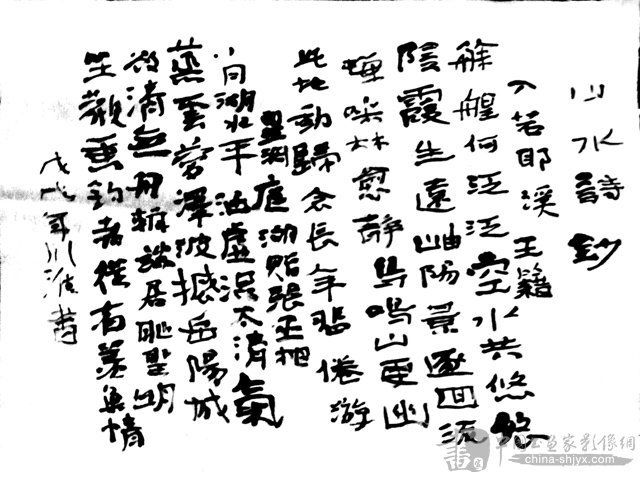 山水詩鈔
入若耶溪 王籍
艅艎何泛泛空水共悠悠
陰霞生遠岫陽景逐回流
蟬噪林愈静鳥鳴山更幽
此地動歸念長年悲倦游
望洞庭湖貽張丞相
八月湖水平涵虛混太清氣
蒸雲夢澤波撼岳陽城
欲濟無舟楫端居耻聖明
坐觀垂釣者徒有羨魚情
戊戌年川淮書
中国书画家影像網
china-shjyx.com